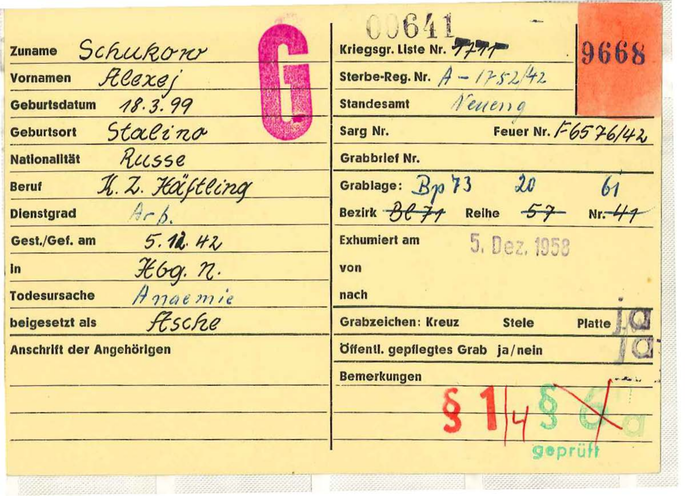 00641
9668
G
Zuname Schukow
Vornamen Alexej
Geburtsdatum 18.3.99
Geburtsort Stalino
Nationalität Russe
Beruf K.Z. Häftling
Dienstgrad Arb.
Gest./Gef. am 5.12.42
in Hbg. N.
Todesursache Anaemie
beigesetzt als Asche
Anschrift der Angehörigen
Kriegsgr. Liste Nr. 1711
Sterbe-Reg. Nr. A-1752/42
Standesamt Neueng
Sarg Nr. Feuer Nr. F6576/42
Grabbrief Nr.
Grablage: Bp 73 20 61
Bezirk Bl 71 Reihe 57 Nr. 41
Exhumiert am 5. Dez. 1958
von
nach
Grabzeichen: Kreuz Stele Platte ja
Öffentl. gepflegtes Grab ja/nein ja
Bemerkungen
§ 1/4 § 6
geprüft